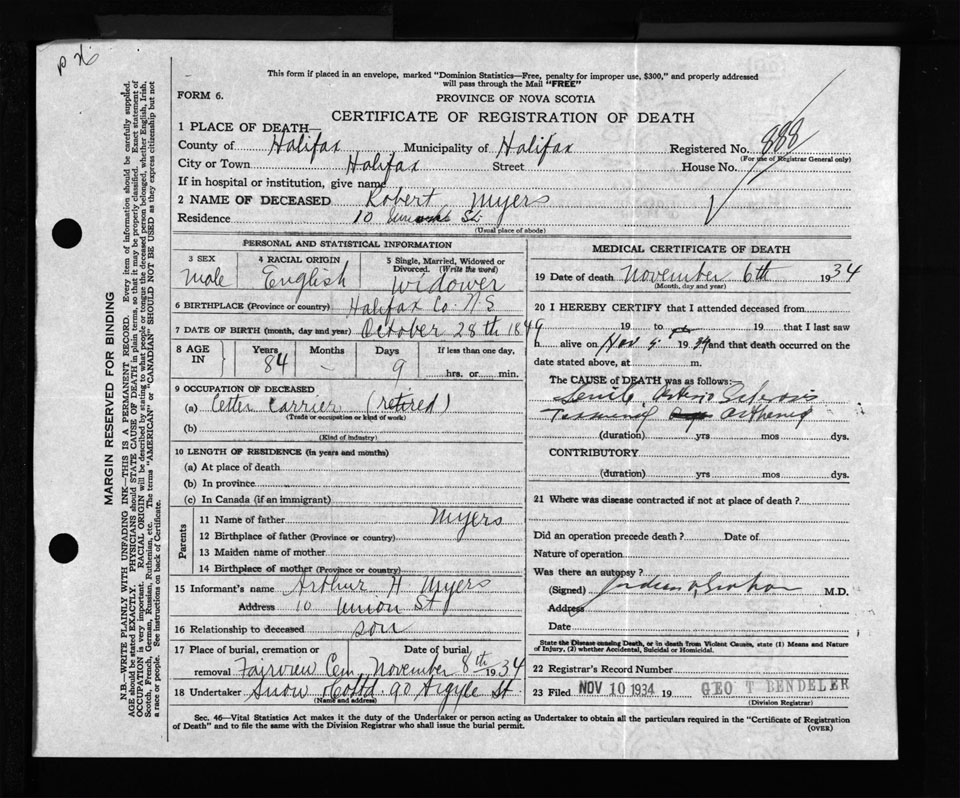 This form if placed in an envelope, marked "Dominion Statistics—Free, penalty for improper use, $300," and properly addressed
will pass through the Mail "FREE"
FORM 6.
PROVINCE OF NOVA SCOTIA
CERTIFICATE OF REGISTRATION OF DEATH
1 PLACE OF DEATH—
County of Halifax Municipality of Halifax Registered No. 888
(For use of Registrar General only)
City or Town Halifax Street House No.
If in hospital or institution, give name
2 NAME OF DECEASED Robert Myers
Residence 10 St.
(Usual place of abode)
PERSONAL AND STATISTICAL INFORMATION
3 SEX 4 RACIAL ORIGIN 5 Single, Married, Widowed or
Divorced. (Write the word)
male English widower
6 BIRTHPLACE (Province or country) Halifax Co. N.S
7 DATE OF BIRTH (month, day and year) October 28th 1849
8 AGE IN Years Months Days If less than one day,
84 - 9 hrs. or min.
9 OCCUPATION OF DECEASED
(a) Letter Carrier (retired)
(Trade or occupation or kind of work)
(b)
(Kind of industry)
10 LENGTH OF RESIDENCE (in years and months)
(a) At place of death
(b) In province
(c) In Canada (if an immigrant)
Parents
11 Name of father Myers
12 Birthplace of father (Province or country)
13 Maiden name of mother
14 Birthplace of mother (Province or country)
15 Informant's name Arthur H Myers
Address 10 Union St
16 Relationship to deceased son
17 Place of burial, cremation or Date of burial,
removal Fairview Cem November 8th 1934
18 Undertaker Snow & Co Ltd 90 Argyle St.
(Name and address)
MEDICAL CERTIFICATE OF DEATH
19 Date of death November 6th 1934
(Month, day and year)
20 I HEREBY CERTIFY that I attended deceased from
19 to 19 that I last saw
h alive on Nov 5 1934 and that death occurred on the
date stated above, at m.
The CAUSE of DEATH was as follows:
Senile Arterio Sclerosis
(duration) yrs mos dys.
CONTRIBUTORY
(duration) yrs mos dys.
21 Where was disease contracted if not at place of death ?
Did an operation precede death ? Date of
Nature of operation
Was there an autopsy ?
(Signed) M.D.
Address
Date
State the Disease causing Death, or in death from Violent Causes, state (1) Means and Nature
of Injury, (2) whether Accidental, Suicidal or Homicidal.
22 Registrar's Record Number
23 Filed NOV 10 1934 19 GEO T BENDELER
(Division Registrar)
Sec. 46—Vital Statistics Act makes it the duty of the Undertaker or person acting as Undertaker to obtain all the particulars required in the "Certificate of Registration
of Death" and to file the same with the Division Registrar who shall issue the burial permit.
(OVER)
MARGIN RESERVED FOR BINDING
N.B.—WRITE PLAINLY WITH UNFADING INK—THIS IS A PERMANENT RECORD. Every item of information should be carefully supplied.
AGE should be stated EXACTLY. PHYSICIANS should STATE CAUSE OF DEATH in plain terms, so that it may be properly classified. Exact statement of
OCCUPATION is very important. RACIAL ORIGIN will be described by stating to what people or tongue the deceased person belonged, whether English, Irish,
Scotch, French, German, Russian, Ruthenian, etc. The terms "AMERICAN" or "CANADIAN" SHOULD NOT BE USED as they express citizenship but not
a race or people. See instructions on back of Certificate.